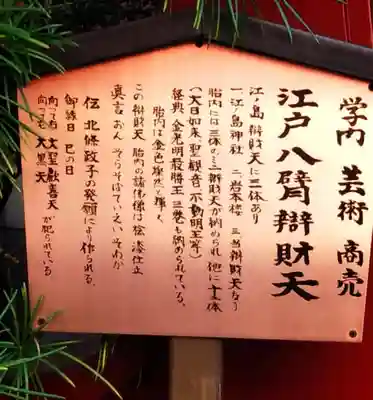 学問 芸術 商売
江戸八臂辯財天
江ノ島辯財天に三体あり
一江ノ島神社 二岩本楼 三当辯財天なり
胎内には三体の辯財天が納められ他に十三体
(大日如来、聖観音、不動明王等)
経典、金光明最勝王三巻も納められている、
胎内は金色燦然と輝く
この辯財天 胎内の諸仏像は桧、漆仕立
真言 おん そらそばていえい そわか
伝 北條政子の発願により作られる、
御縁日 巳の日
向って右 大聖歓喜天 が祀られている
向って左 大黒天